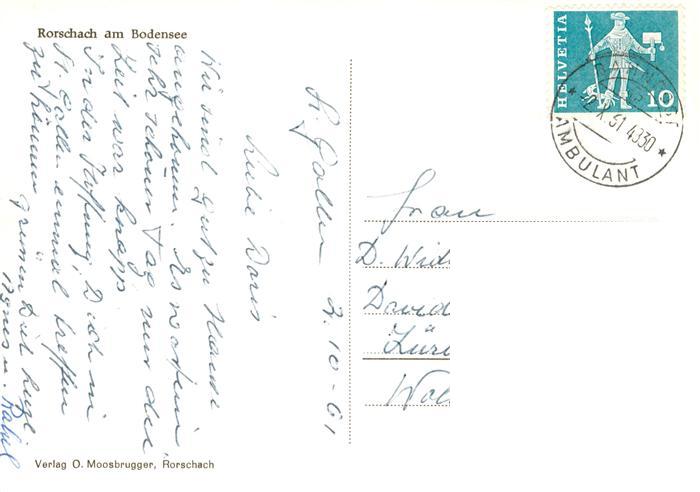 Rorschach am Bodensee
St. Gallen 2.10-61
Liebe Doris
Wir sind gut zu Hause
angekommen. Es war ein
sehr schöner Tag nur die
Zeit war knapp.
In der Hoffnung, Dich in
St. Gallen einmal treffen
zu können grüssen Dich herzl.
Agnes u.
Verlag O. Moosbrugger, Rorschach
HELVETIA
10
AMBULANT
X.61 4330
Frau
D. Wid
David
Züri
Wol